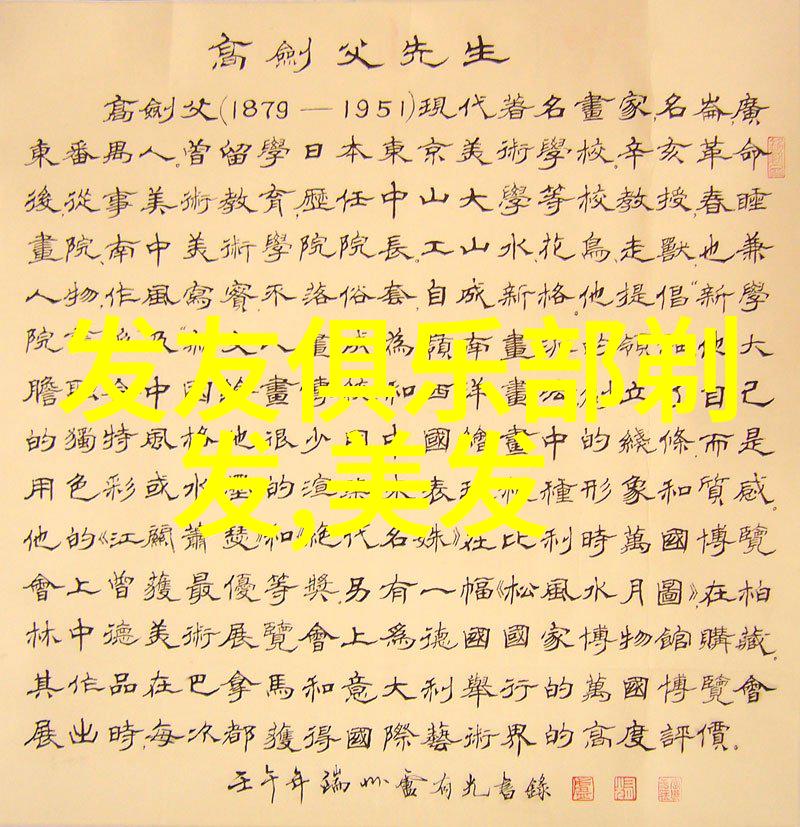 高劍父先生
高劍父(1879—1951)現代著名畫家,名崙,廣
東番禺人。曾留學日本東京美術學校。辛亥革命
後,從事美術教育,歷任中山大學等校教授,春睡
畫院、南中美術學院院長。工山水、花鳥、走獸,也兼
人物,作風寫實,不落俗套,自成新格。他提倡“新學
院
膽
的獨特風格,他很少用中國繪畫中的綫條,而是
用色彩或水墨的渲染來表現種形象和質感。
他的《江關蕭瑟》和《絶代名姝》在比利時萬國博覽
會上曾獲最優等獎,另有一幅《松風水月圖》,在柏
林中德美術展覽會上爲德國國家博物館購藏。
其作品在巴拿馬和意大利舉行的萬國博覽會
展出時,每次都獲得國際藝術界的高度評價。
壬午年端州盧有光書錄
发友俱乐部剃
发,美发